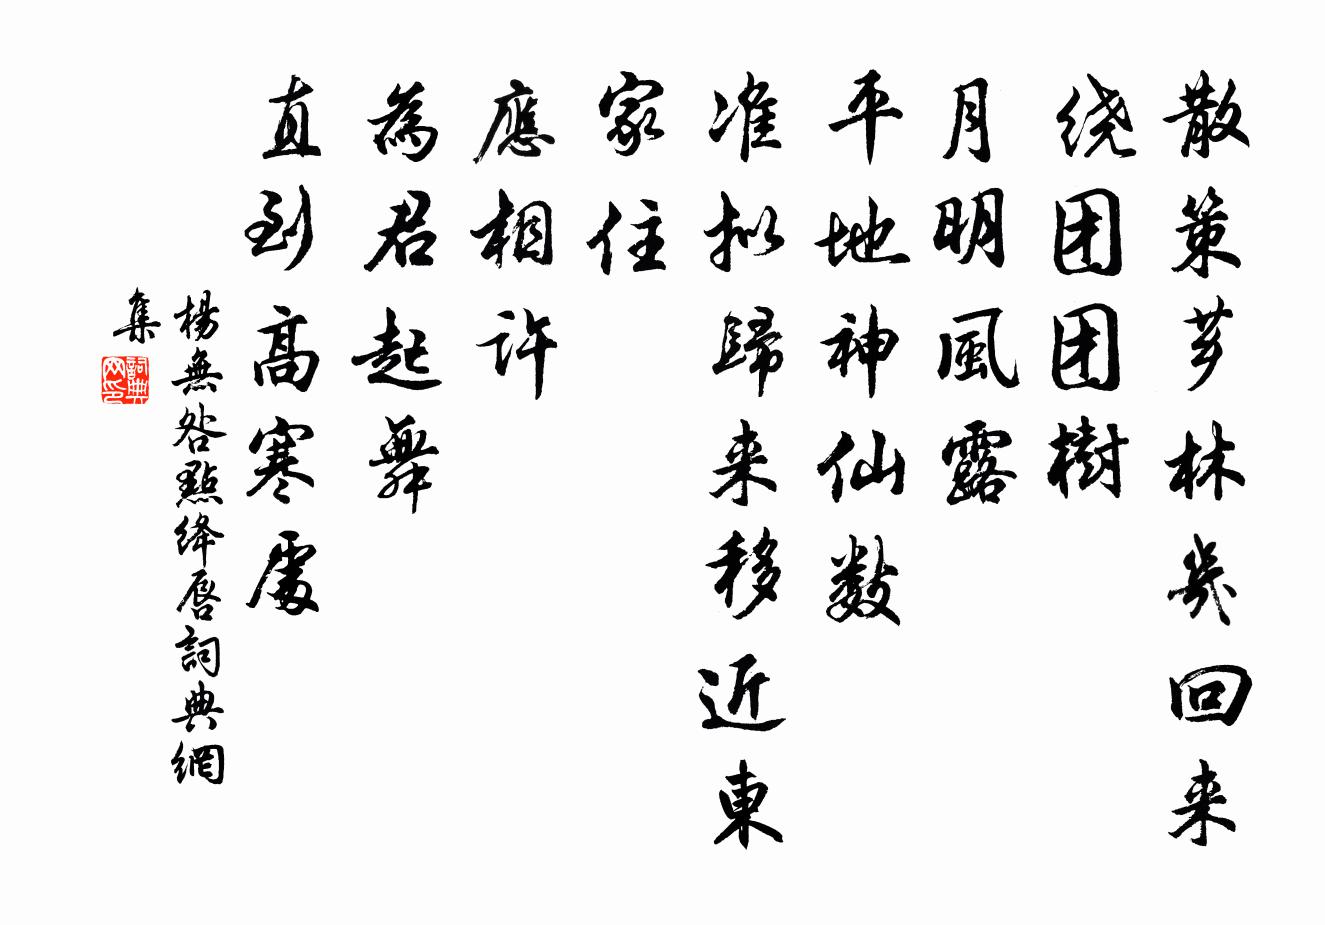 散策芗林幾回来
绕团团樹
月明風露
平地神仙数
准拟歸来移近東
家住
應相許
為君起舞
直到高寒處
楊無咎點绛唇詞典網
集
詞典
网印